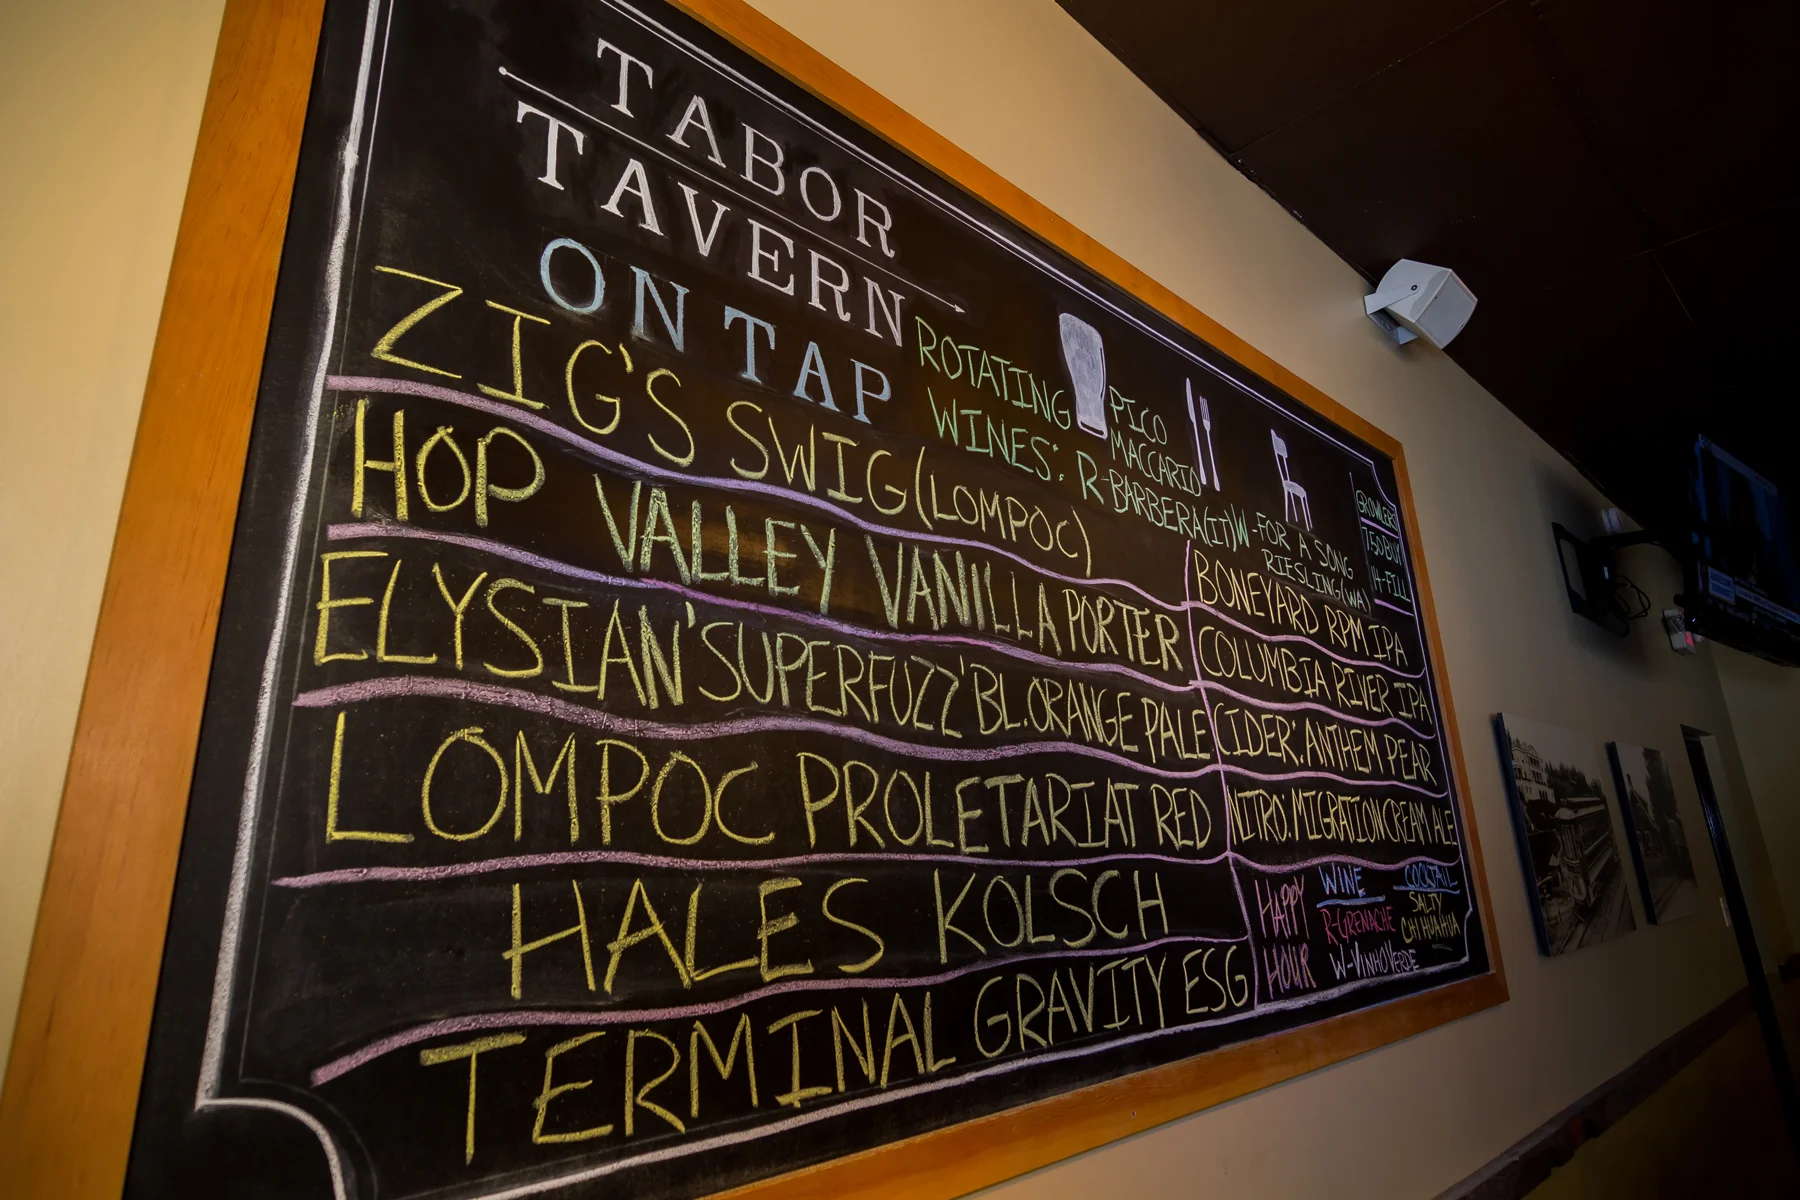 TABOR
TAVERN
ON TAP
ZIG'S SWIG (LOMPOC)
HOP VALLEY VANILLA PORTER
ELYSIAN 'SUPERFUZZ' BL. ORANGE PALE
LOMPOC PROLETARIAT RED
HALES KOLSCH
TERMINAL GRAVITY ESG
ROTATING
WINES:
PICO
MACCARIO
R-BARBERA(IT)
W-FOR A SONG
RIESLING(WA)
GROWLERS
7.50 BUY
14-FILL
BONEYARD RPM IPA
COLUMBIA RIVER IPA
CIDER: ANTHEM PEAR
NITRO: MIGRATION CREAM ALE
HAPPY
HOUR
WINE
R-GRENACHE
W-VINHO VERDE
COCKTAIL
SALTY
CHIHUAHUA